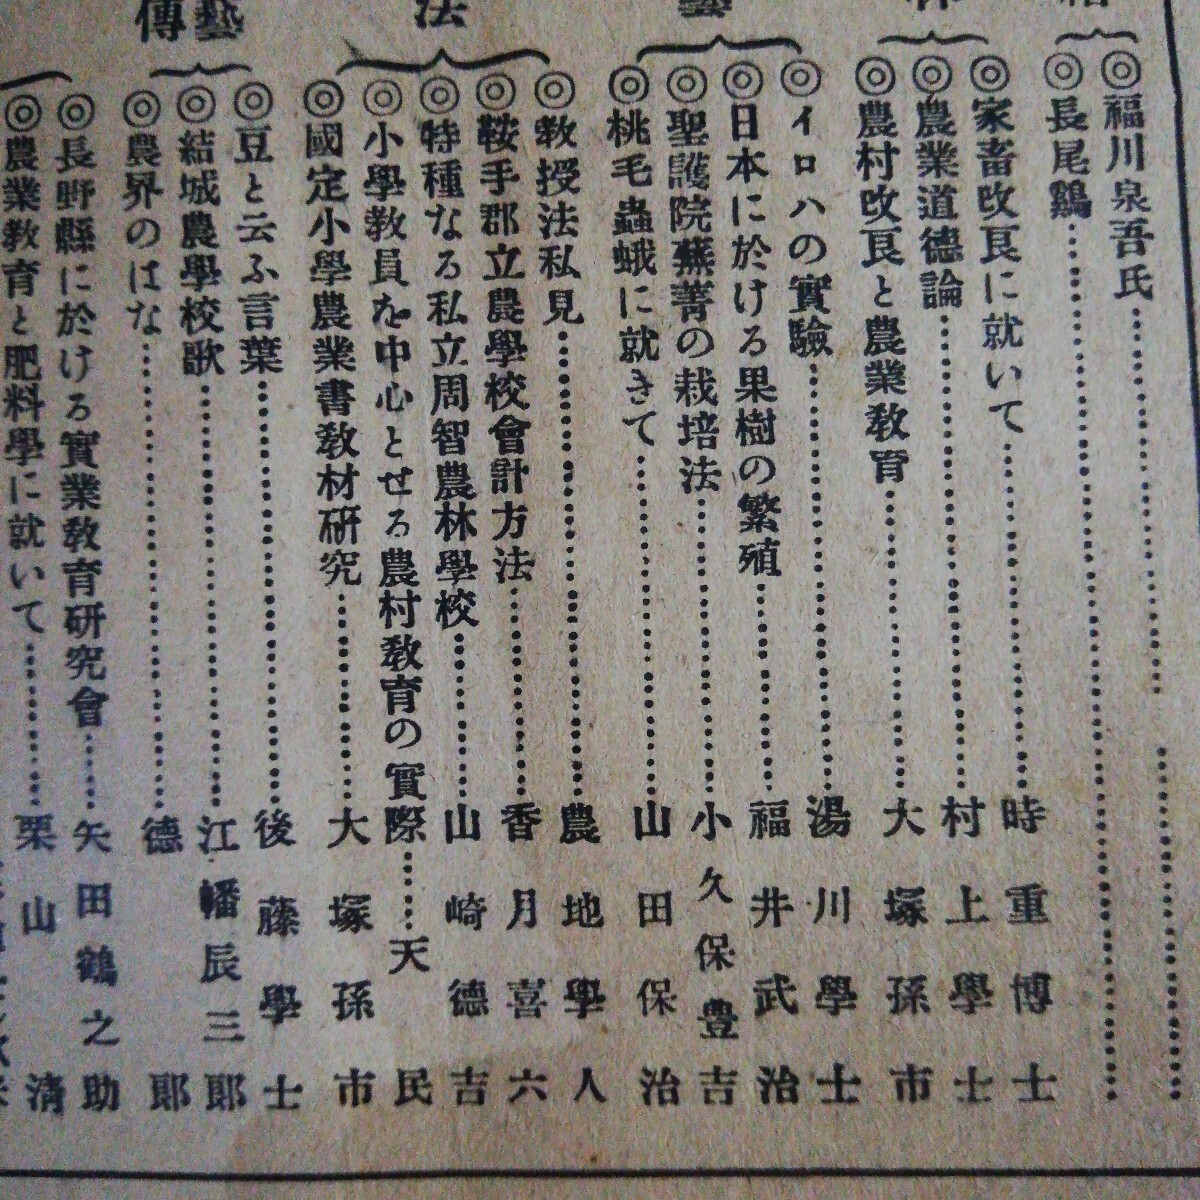 ◎福川泉吾氏
◎長尾鷄
◎家畜改良に就いて 時重博士
◎農業道德論 村上學士
◎農村改良と農業敎育 大塚孫市
藝
◎イロハの實驗 湯川學士
◎日本に於ける果樹の繁殖 福井武治
◎聖護院蕪菁の栽培法 小久保豊吉
◎桃毛蟲蛾に就きて 山田保治
法
◎敎授法私見 農地學人
◎鞍手郡立農學校會計方法 香月喜六
◎特種なる私立周智農林學校 山崎德吉
◎小學敎員を中心とせる農村敎育の實際 天民
◎國定小學農業書敎材硏究 大塚孫市
藝
傳
◎豆と云ふ言葉 後藤學士
◎結城農學校歌 江幡辰三郎
◎農界のはな 德郎
◎長野縣に於ける實業敎育硏究會 矢田鶴之助
◎農業敎育と肥料學に就いて 栗山淸